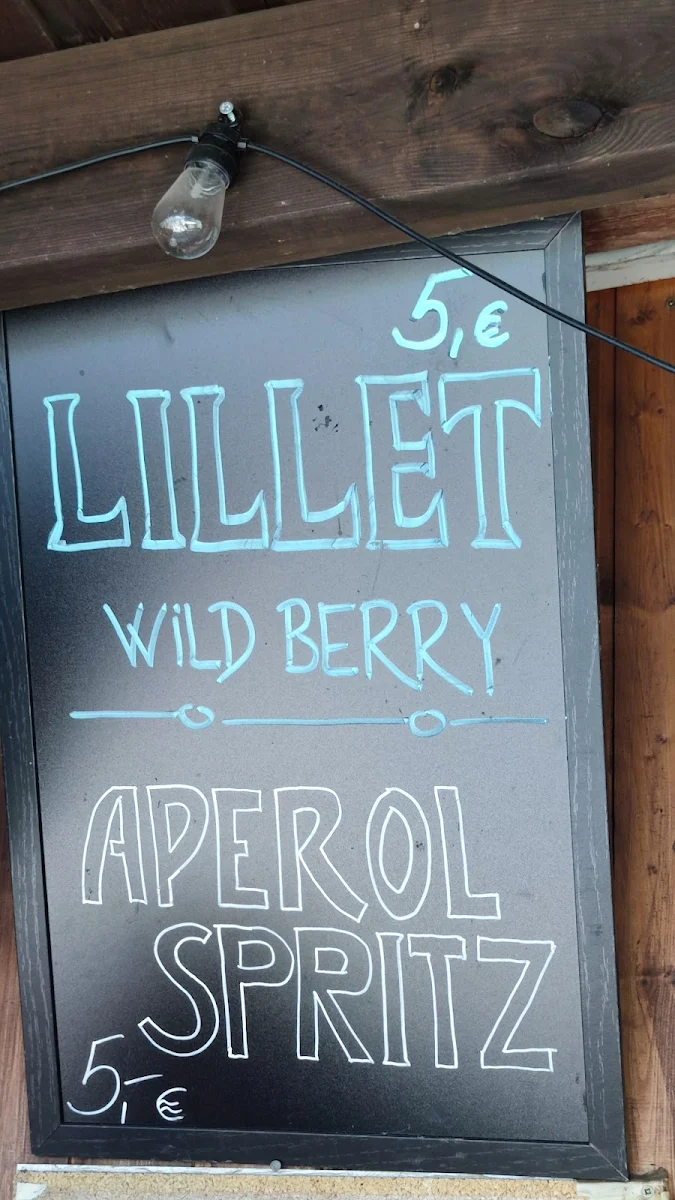 5,€
LILLET
WiLD BERRY
APEROL
SPRITZ
5,-€